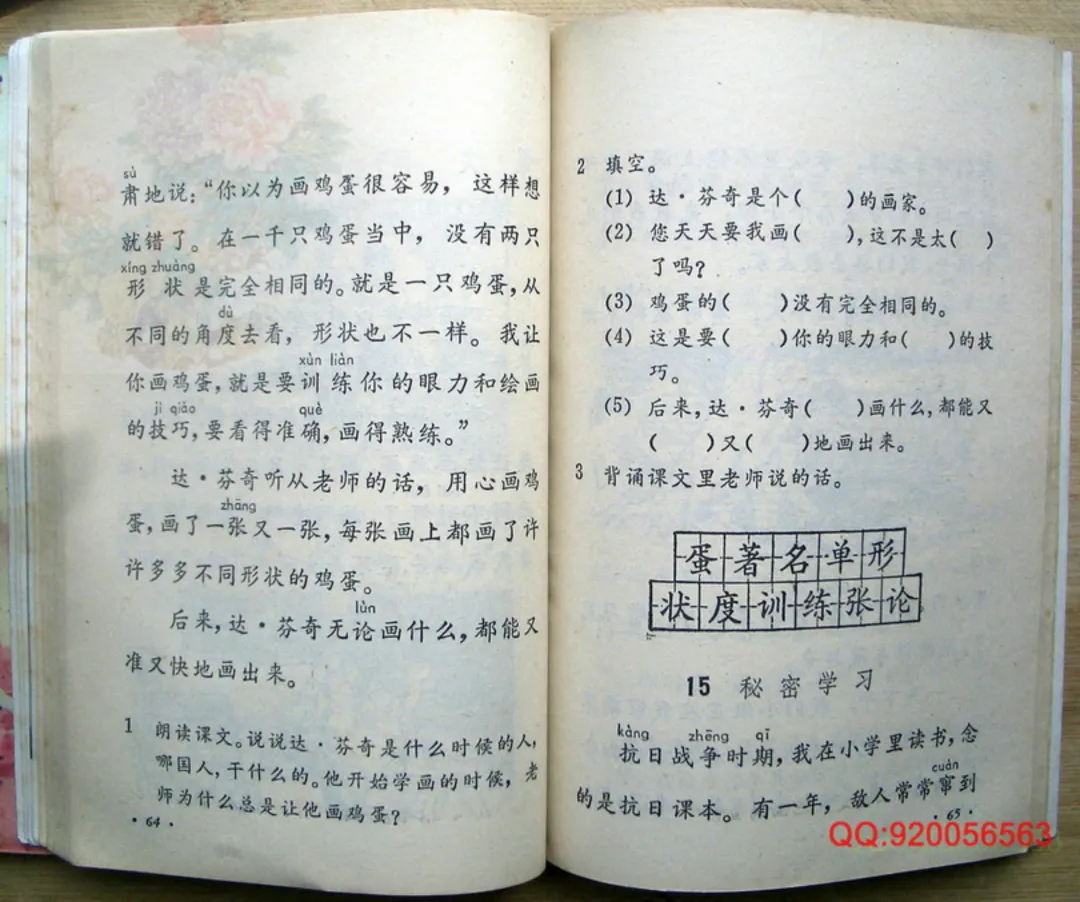 sù
肃地说:“你以为画鸡蛋很容易，这样想
就错了。在一千只鸡蛋当中，没有两只
xíng zhuàng
形状是完全相同的。就是一只鸡蛋，从
dù
不同的角度去看，形状也不一样。我让
xùn liàn
你画鸡蛋，就是要训练你的眼力和绘画
jì qiǎo què
的技巧，要看得准确，画得熟练。”
达·芬奇听从老师的话，用心画鸡
zhāng
蛋，画了一张又一张，每张画上都画了许
许多多不同形状的鸡蛋。
lùn
后来，达·芬奇无论画什么，都能又
准又快地画出来。
1 朗读课文。说说达·芬奇是什么时候的人，
哪国人，干什么的。他开始学画的时候，老
师为什么总是让他画鸡蛋?
·64·
2 填空。
(1) 达·芬奇是个( )的画家。
(2) 您天天要我画( )，这不是太( )
了吗?
(3) 鸡蛋的( )没有完全相同的。
(4) 这是要( )你的眼力和( )的技
巧。
(5) 后来，达·芬奇( )画什么，都能又
( )又( )地画出来。
3 背诵课文里老师说的话。
蛋著名单形
状度训练张论
15 秘密学习
kàng zhēng qī
抗日战争时期，我在小学里读书，念
cuàn
的是抗日课本。有一年，敌人常常窜到
·65·
QQ:920056563